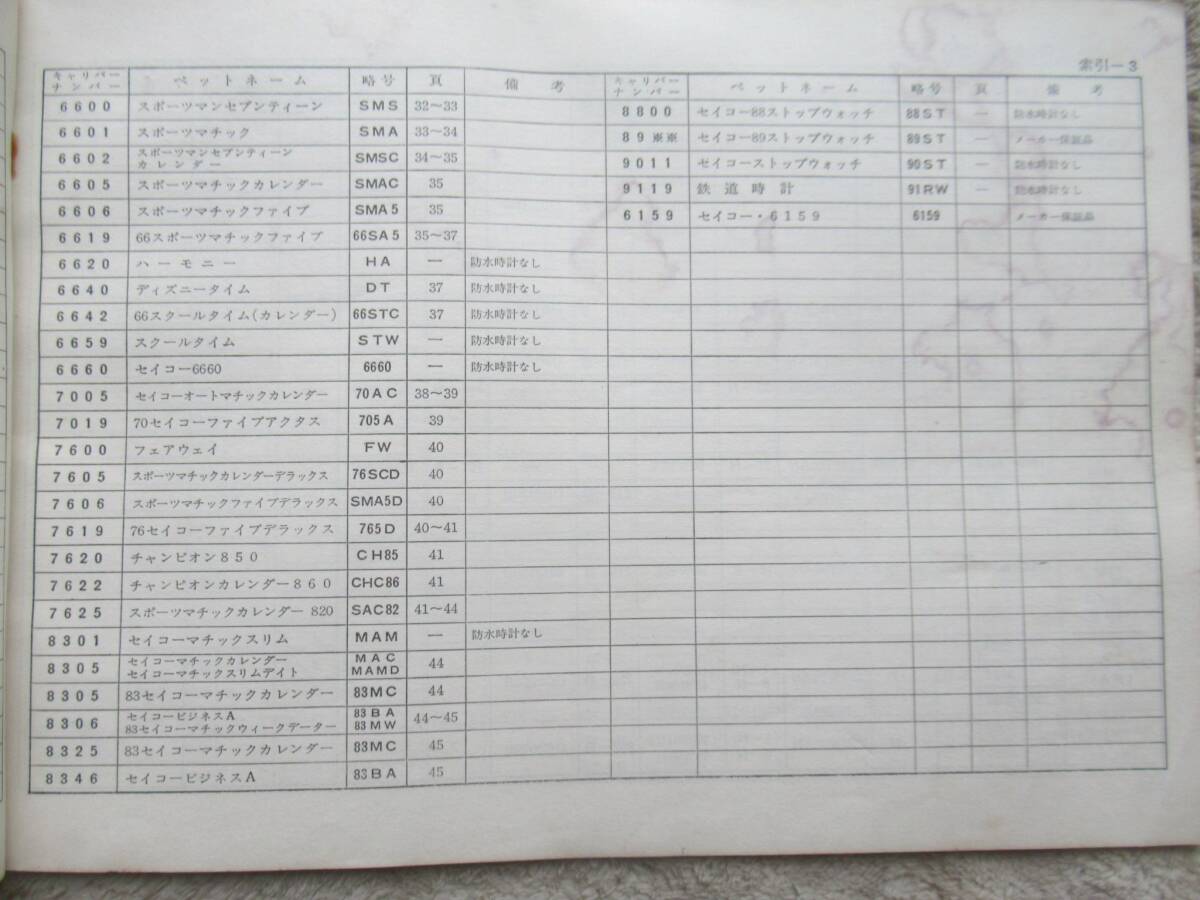 索引－3
キャリバーナンバー ペットネーム 略号 頁 備考
6600 スポーツマンセブンティーン SMS 32〜33
6601 スポーツマチック SMA 33〜34
6602 スポーツマンセブンティーンカレンダー SMSC 34〜35
6605 スポーツマチックカレンダー SMAC 35
6606 スポーツマチックファイブ SMA5 35
6619 66スポーツマチックファイブ 66SA5 35〜37
6620 ハーモニー HA ― 防水時計なし
6640 ディズニータイム DT 37 防水時計なし
6642 66スクールタイム(カレンダー) 66STC 37 防水時計なし
6659 スクールタイム STW ― 防水時計なし
6660 セイコー6660 6660 ― 防水時計なし
7005 セイコーオートマチックカレンダー 70AC 38〜39
7019 70セイコーファイブアクタス 705A 39
7600 フェアウェイ FW 40
7605 スポーツマチックカレンダーデラックス 76SCD 40
7606 スポーツマチックファイブデラックス SMA5D 40
7619 76セイコーファイブデラックス 765D 40〜41
7620 チャンピオン850 CH85 41
7622 チャンピオンカレンダー860 CHC86 41
7625 スポーツマチックカレンダー 820 SAC82 41〜44
8301 セイコーマチックスリム MAM ― 防水時計なし
8305 セイコーマチックカレンダー MAC 44
セイコーマチックスリムデイト MAMD
8305 83セイコーマチックカレンダー 83MC 44
8306 セイコービジネスA 83BA 44〜45
83セイコーマチックウィークデーター 83MW
8325 83セイコーマチックカレンダー 83MC 45
8346 セイコービジネスA 83BA 45
キャリバーナンバー ペットネーム 略号 頁 備考
8800 セイコー88ストップウォッチ 88ST ― 防水時計なし
89※※ セイコー89ストップウォッチ 89ST ― メーカー保証品
9011 セイコーストップウォッチ 90ST ― 防水時計なし
9119 鉄道時計 91RW ― 防水時計なし
6159 セイコー・6159 6159 メーカー保証品